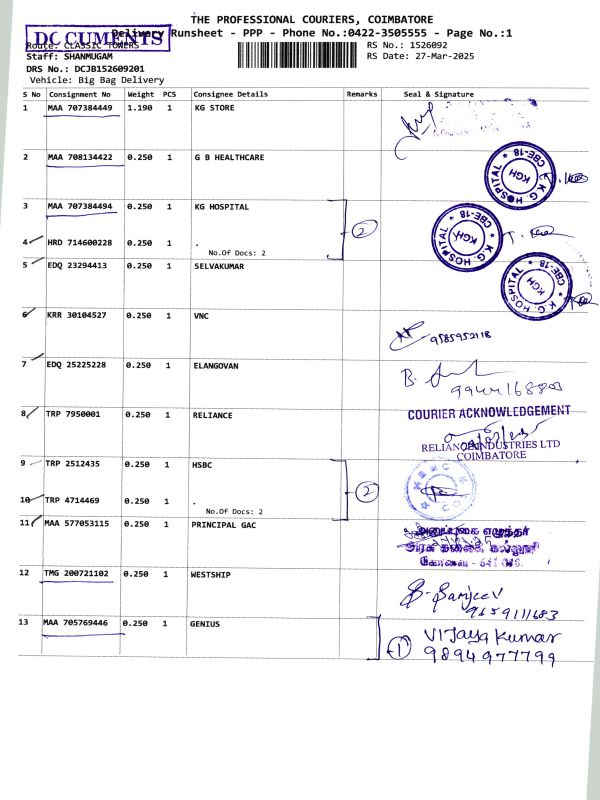 THE PROFESSIONAL COURIERS, COIMBATORE
DOCUMENTS
Delivery Runsheet - PPP - Phone No.:0422-3505555 - Page No.:1
Route: CLASSIC TOWERS
RS No.: 1526092
Staff: SHANMUGAM
RS Date: 27-Mar-2025
DRS No.: DCJB152609201
Vehicle: Big Bag Delivery
S No Consignment No Weight PCS Consignee Details Remarks Seal & Signature
1 MAA 707384449 1.190 1 KG STORE
2 MAA 708134422 0.250 1 G B HEALTHCARE
K.G. HOSPITAL CBE-18 KGH
3 MAA 707384494 0.250 1 KG HOSPITAL
2
K.G. HOSPITAL CBE-18 KGH
4 HRD 714600228 0.250 1 .
No.Of Docs: 2
5 EDQ 23294413 0.250 1 SELVAKUMAR
K.G. HOSPITAL CBE-18 KGH
6 KRR 30104527 0.250 1 VNC
9585952118
7 EDQ 25225228 0.250 1 ELANGOVAN
B.
8 TRP 7950001 0.250 1 RELIANCE
COURIER ACKNOWLEDGEMENT
RELIANCE INDUSTRIES LTD
COIMBATORE
9 TRP 2512435 0.250 1 HSBC
2
HSBC
10 TRP 4714469 0.250 1 .
No.Of Docs: 2
11 MAA 577053115 0.250 1 PRINCIPAL GAC
அரசு கலைக் கல்லூரி
கோவை - 641 018.
12 TMG 200721102 0.250 1 WESTSHIP
S. Sanjeev
9659111683
13 MAA 705769446 0.250 1 GENIUS
1
Vijaya Kumar
9894977799